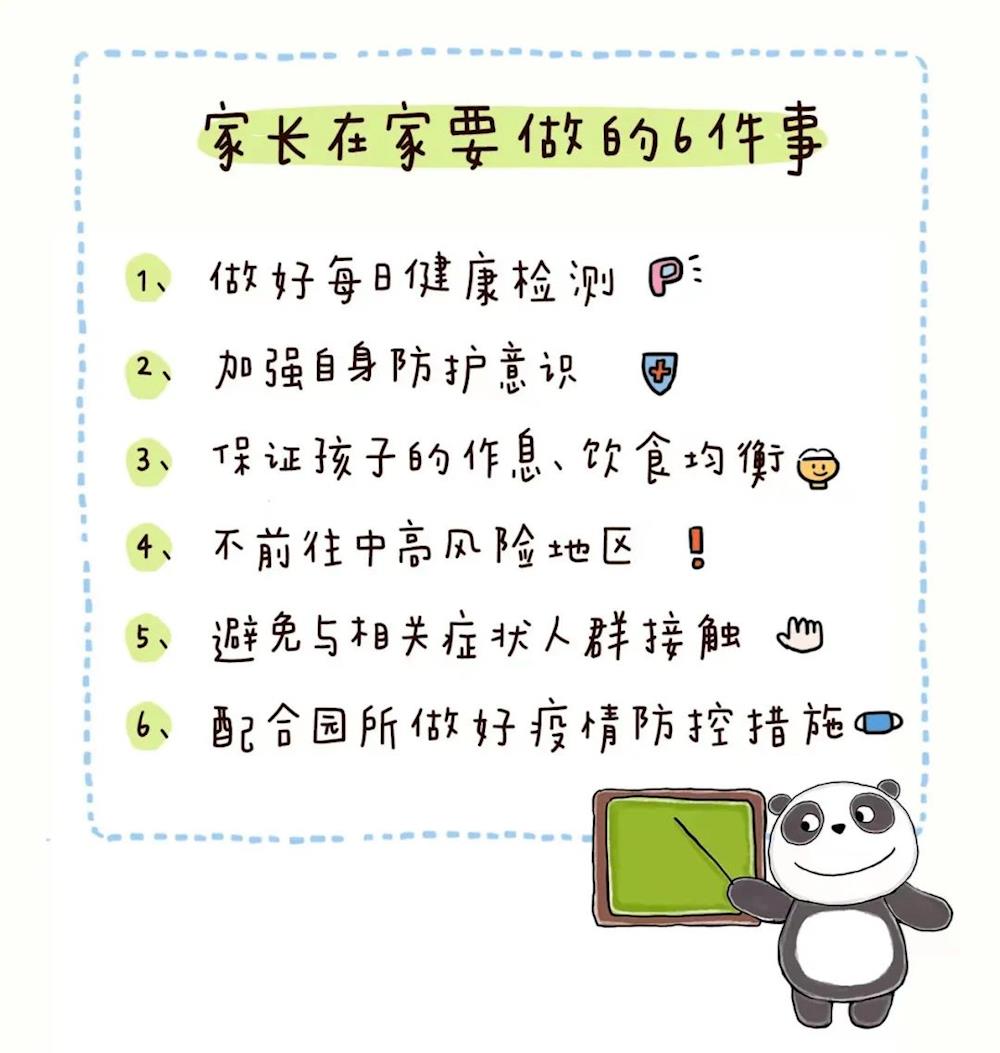 家长在家要做的6件事
1、做好每日健康检测
2、加强自身防护意识
3、保证孩子的作息、饮食均衡
4、不前往中高风险地区
5、避免与相关症状人群接触
6、配合园所做好疫情防控措施